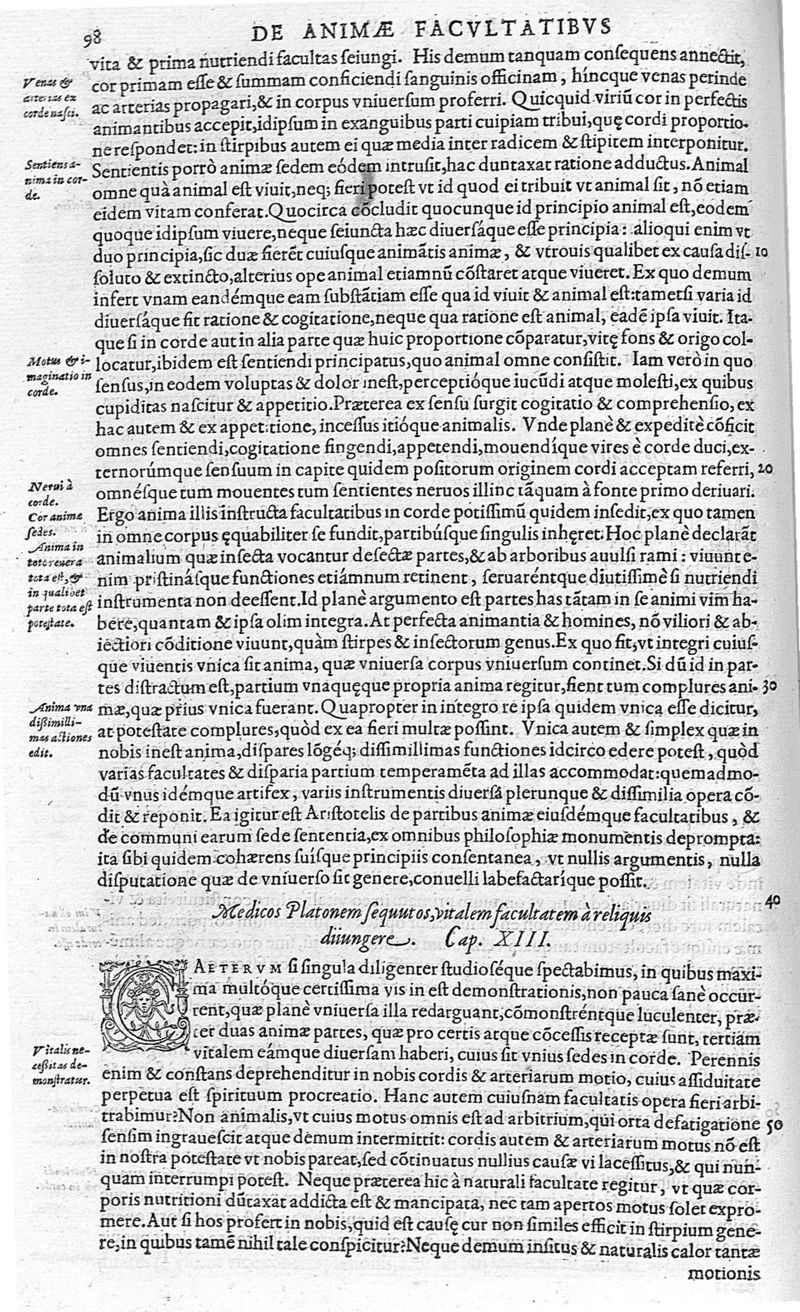 98 DE ANIMÆ FACVLTATIBVS
vita & prima nutriendi facultas seiungi. His demum tanquam consequens annectit,
Venas &
arterias ex
corde nasci.
cor primam esse & summam conficiendi sanguinis officinam, híncque venas perinde
ac arterias propagari, & in corpus vniuersum proferri. Quicquid viriũ cor in perfectis
animantibus accepit, idipsum in exanguibus parti cuipiam tribui, quę cordi proportio-
ne respondet: in stirpibus autem ei quæ media inter radicem & stipitem interponitur.
Sentiens a-
nima in cor-
de.
Sentientis porrò animæ sedem eódem intrusit, hac duntaxat ratione adductus. Animal
omne quà animal est viuit, neq; fieri potest vt id quod ei tribuit vt animal sit, nõ etiam
eidem vitam conferat. Quocirca cõcludit quocunque id principio animal est, eodem
quoque idipsum viuere, neque seiuncta hæc diuersáque esse principia: alioqui enim vt
duo principia, sic duæ fierẽt cuiusque animãtis animæ, & vtrouis qualibet ex causa dis- 10
soluto & extincto, alterius ope animal etiamnũ cõstaret atque viueret. Ex quo demum
infert vnam eandémque eam substãtiam esse qua id viuit & animal est: tametsi varia id
diuersáque fit ratione & cogitatione, neque qua ratione est animal, eadẽ ipsa viuit. Ita-
que si in corde aut in alia parte quæ huic proportione cõparatur, vitę fons & origo col-
Motus & i-
maginatio in
corde.
locatur, ibidem est sentiendi principatus, quo animal omne consistit. Iam verò in quo
sensus, in eodem voluptas & dolor inest, perceptióque iucũdi atque molesti, ex quibus
cupiditas nascitur & appetitio. Præterea ex sensu surgit cogitatio & comprehensio, ex
hac autem & ex appetitione, incessus itióque animalis. Vnde planè & expeditè cõficit
omnes sentiendi, cogitatione fingendi, appetendi, mouendíque vires è corde duci, ex-
ternorúmque sensuum in capite quidem positorum originem cordi acceptam referri, 20
Nerui à
corde.
Cor animæ
sedes.
Anima in
toto reuera
tota est, &
in qualibet
parte tota est
potestate.
omnésque tum mouentes tum sentientes neruos illinc tãquam à fonte primo deriuari.
Ergo anima illis instructa facultatibus in corde potissimũ quidem insedit, ex quo tamen
in omne corpus ęquabiliter se fundit, partibúsque singulis inhęret: Hoc planè declarãt
animalium quæ insecta vocantur desectæ partes, & ab arboribus auulsi rami: viuunt e-
nim pristinásque functiones etiámnum retinent, seruaréntque diutissimè si nutriendi
instrumenta non deessent. Id planè argumento est partes has tãtam in se animi vim ha-
bere, quantam & ipsa olim integra. At perfecta animantia & homines, nõ viliori & ab-
iectiori cõditione viuunt, quàm stirpes & insectorum genus. Ex quo fit, vt integri cuius-
que viuentis vnica sit anima, quæ vniuersa corpus vniuersum continet. Si dũ id in par-
tes distractum est, partium vnaquęque propria anima regitur, fient tum complures ani- 30
Anima vna
dißimilli-
mas actiones
edit.
mæ, quæ prius vnica fuerant. Quapropter in integro re ipsa quidem vnica esse dicitur,
at potestate complures, quòd ex ea fieri multæ possint. Vnica autem & simplex quæ in
nobis inest anima, dispares lõgéq; dissimillimas functiones idcirco edere potest, quòd
varias facultates & disparia partium temperamẽta ad illas accommodat: quemadmo-
dũ vnus idémque artifex, variis instrumentis diuersa plerunque & dissimilia opera cõ-
dit & reponit. Ea igitur est Aristotelis de partibus animæ eiusdémque facultatibus, &
de communi earum sede sententia, ex omnibus philosophiæ monumentis deprompta:
ita sibi quidem cohærens suísque principiis consentanea, vt nullis argumentis, nulla
disputatione quæ de vniuerso sit genere, conuelli labefactaríque possit.
40
Medicos Platonem sequutos, vitalem facultatem à reliquis
diiungere. Cap. XIII.
CAETERVM si singula diligenter studioséque spectabimus, in quibus maxi-
ma multóque certissima vis in est demonstrationis, non pauca sanè occur-
rent, quæ planè vniuersa illa redarguant, cõmonstréntque luculenter, præ-
ter duas animæ partes, quæ pro certis atque cõcessis receptæ sunt, tertiam
Vitalis ne-
ceßitas de-
monstratur.
vitalem eámque diuersam haberi, cuius sit vnius sedes in corde. Perennis
enim & constans deprehenditur in nobis cordis & arteriarum motio, cuius assiduitate
perpetua est spirituum procreatio. Hanc autem cuiusnam facultatis opera fieri arbi-
trabimur? Non animalis, vt cuius motus omnis est ad arbitrium, qui orta defatigatione 50
sensim ingrauescit atque demum intermittit: cordis autem & arteriarum motus nõ est
in nostra potestate vt nobis pareat, sed cõtinuatus nullius causæ vi lacessitus, & qui nun-
quam interrumpi potest. Neque præterea hic à naturali facultate regitur, vt quæ cor-
poris nutritioni dũtaxat addicta est & mancipata, nec tam apertos motus solet expro-
mere. Aut si hos profert in nobis, quid est causę cur non similes efficit in stirpium gene-
re, in quibus tamẽ nihil tale conspicitur? Neque demum insitus & naturalis calor tantæ
motionis